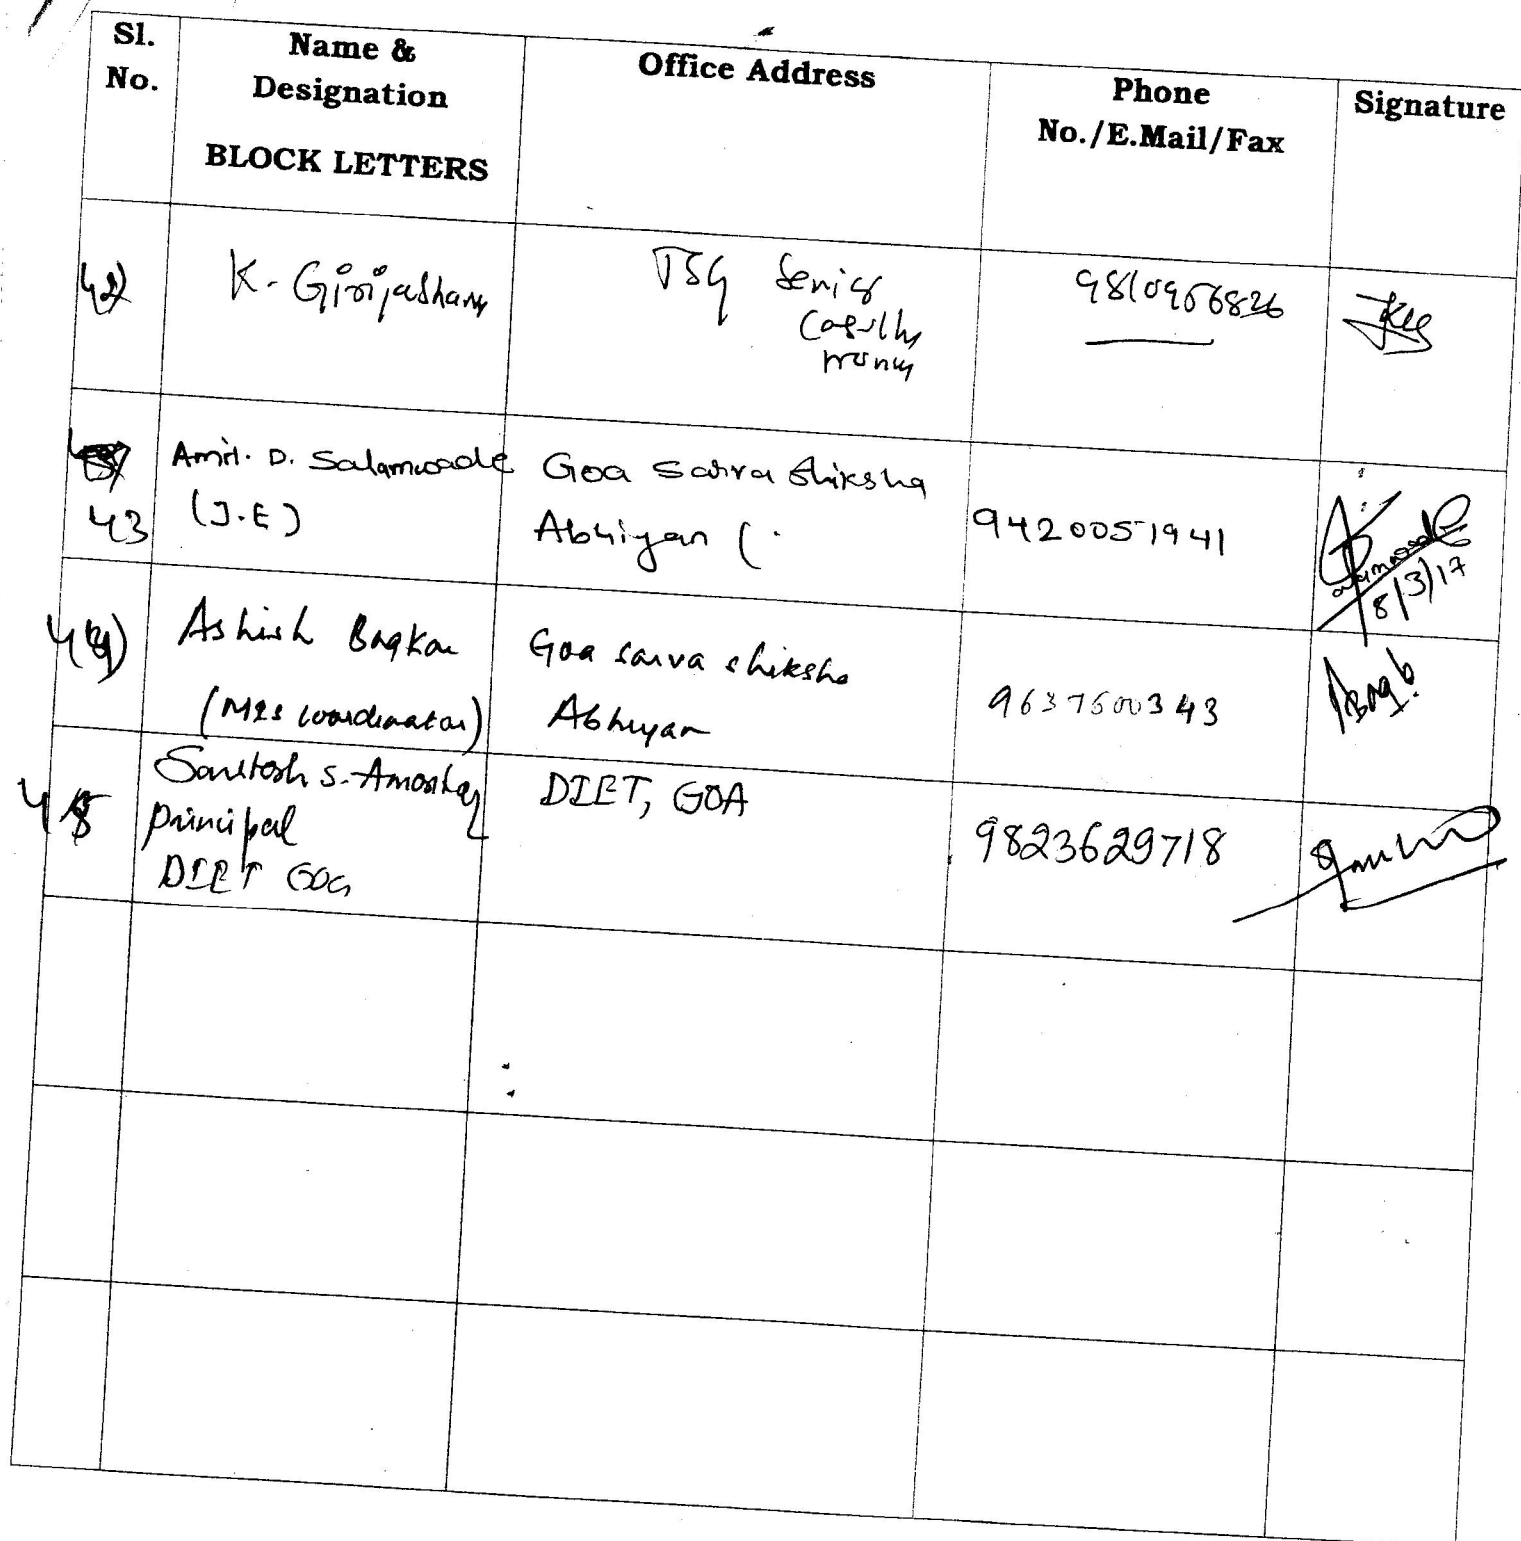 Sl.
No.
Name &
Designation
BLOCK LETTERS
Office Address
Phone
No./E.Mail/Fax
Signature
42)
K. Girijashan
TSG Senior
9810956826
43
Amit. D. Salamwade
(J.E)
Goa Sarva Shiksha
Abhiyan (.
9420051941
8/3/17
44)
Ashish Bagkar
(MIS coordinator)
Goa sarva shiksha
Abhiyan
9637600343
45
Santosh S. Amonkar
principal
DIET GOA
DIET, GOA
9823629718